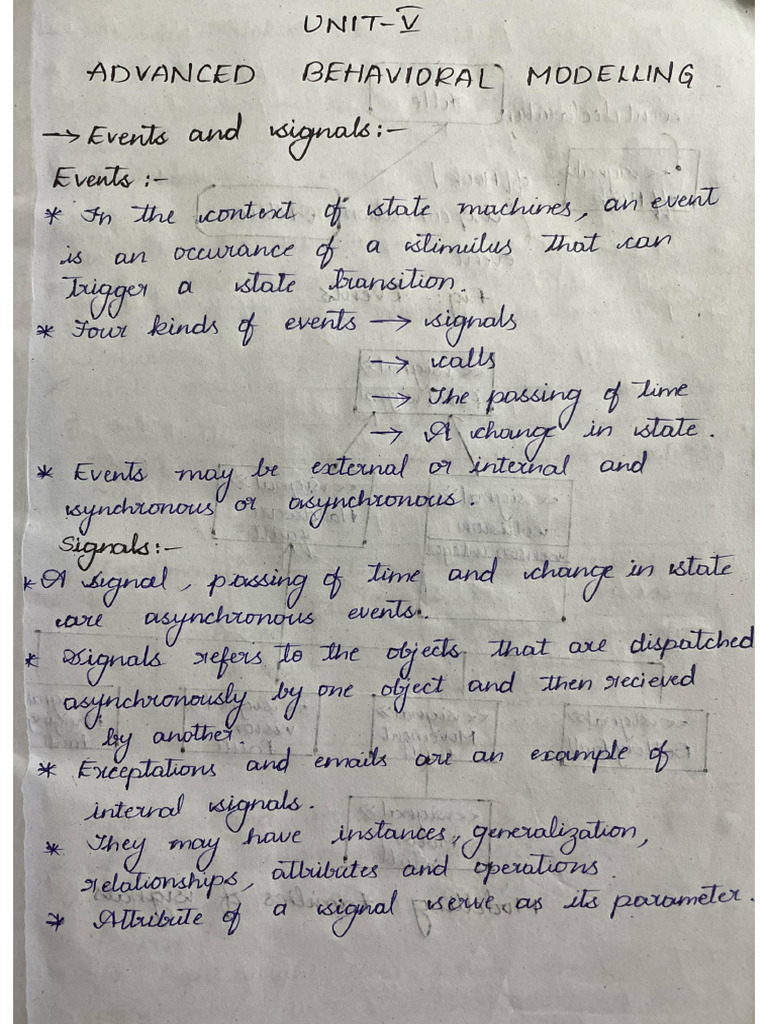 UNIT-V
ADVANCED BEHAVIORAL MODELLING
→ Events and signals:-
Events:-
* In the context of state machines, an event
is an occurance of a stimulus that can
trigger a state transition.
* Four kinds of events → signals
→ calls
→ The passing of time
→ A change in state.
* Events may be external or internal and
synchronous or asynchronous.
Signals:-
* A signal, passing of time and change in state
are asynchronous events.
* Signals refers to the objects that are dispatched
asynchronously by one object and then recieved
by another
* Exceptations and emails are an example of
internal signals.
* They may have instances, generalization,
relationships, attributes and operations.
* Attribute of a signal serve as its parameter.